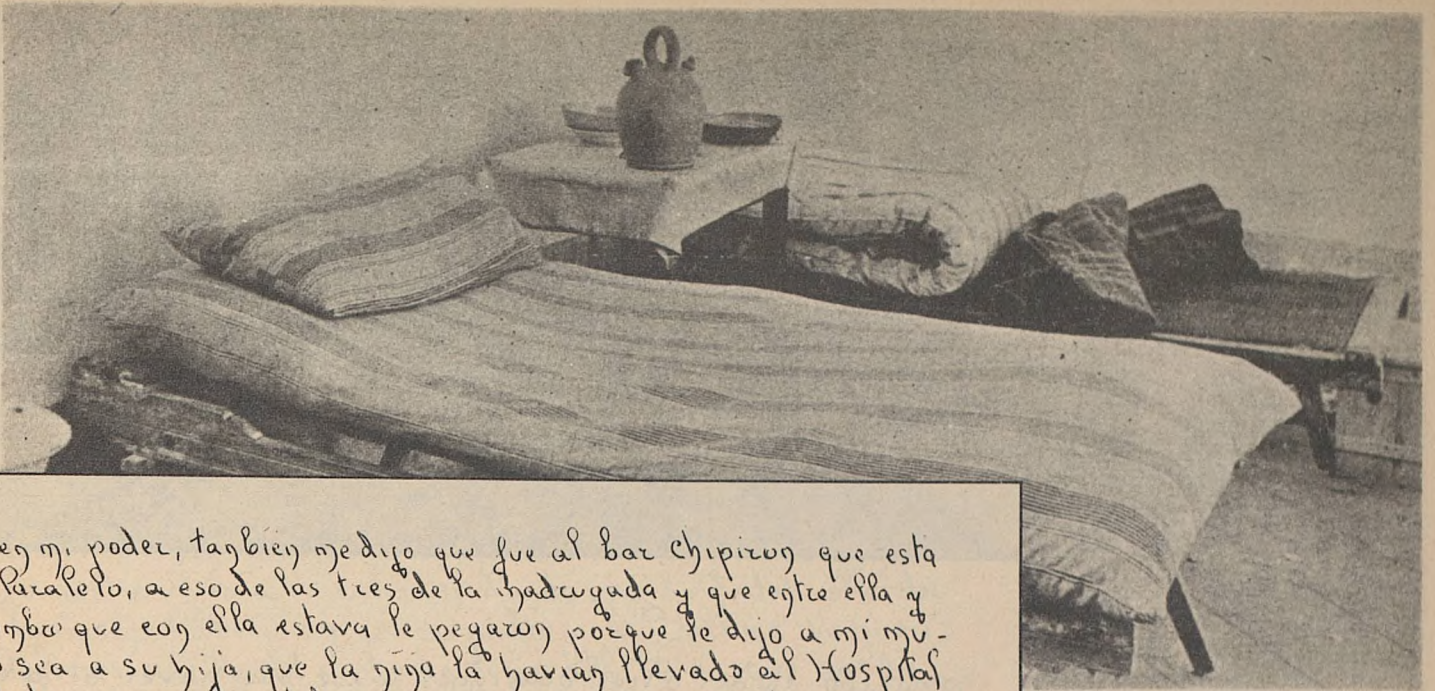 en mi poder, tanbien me dijo que fue al bar Chipiron que esta
Paralelo, a eso de las tres de la madrugada y que entre ella y
mbre que con ella estava le pegaron porque le dijo a mi mu-
o sea a su hija, que la niña la havian llevado al Hospital